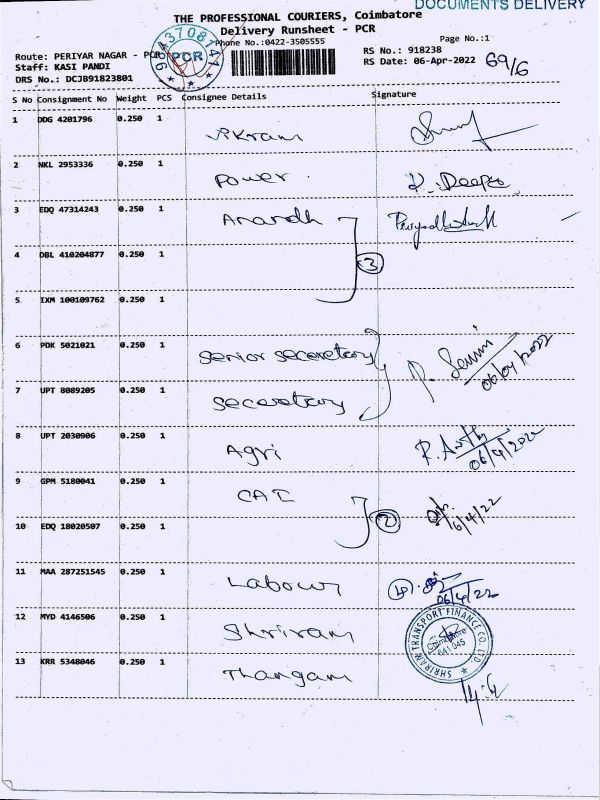 DOCUMENTS DELIVERY
THE PROFESSIONAL COURIERS, Coimbatore
Delivery Runsheet - PCR
Phone No.:0422-3505555
Page No.:1
Route: PERIYAR NAGAR - PCR
RS No.: 918238
Staff: KASI PANDI
RS Date: 06-Apr-2022 69/6
DRS No.: DCJB91823801
PCR
S No Consignment No Weight PCS Consignee Details Signature
1 DDG 4201796 0.250 1 Vikram
2 NKL 2953336 0.250 1 Power. R. Deepa
3 EDQ 47314243 0.250 1 Anandh
4 DBL 410204877 0.250 1 3
5 IXM 100109762 0.250 1
6 PDK 5021021 0.250 1 Senior Seceretory 06/04/2022
7 UPT 8089205 0.250 1 Seceretory
8 UPT 2030906 0.250 1 Agri 06/4/2022
9 GPM 5180041 0.250 1 CAI 6/4/22
10 EDQ 18020507 0.250 1 2
11 MAA 287251545 0.250 1 Labour 06/4/22
12 MYD 4146506 0.250 1 Shriram
SHRIRAM TRANSPORT FINANCE CO. LTD.
Coimbatore
641 045
13 KRR 5348046 0.250 1 Thangam